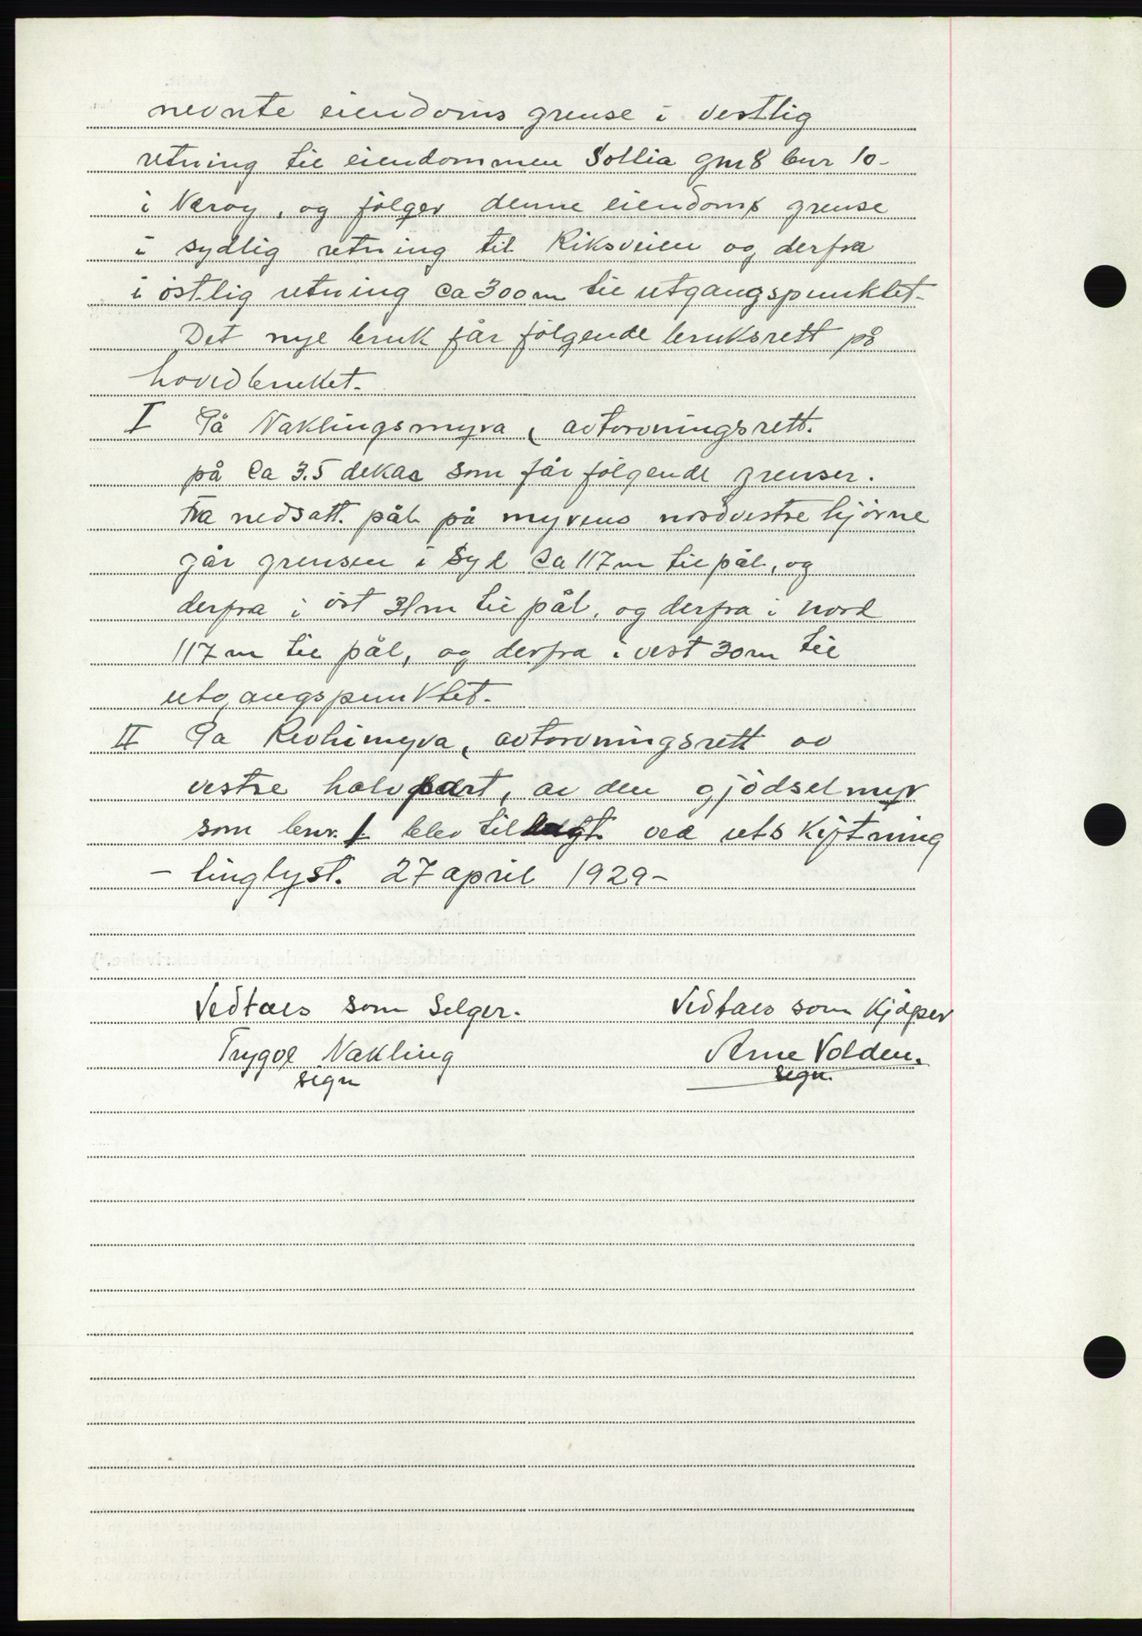 nevnte eiendoms grense i vestlig
retning til eiendommen Sollia gnr 8 bnr 10-
i Nærøy, og følger denne eiendoms grense
i sydlig retning til Riksveien og derfra
i östlig retning ca 300 m til utgangspunktet.
Det nye bruk får følgende bruksrett på
hovedbruket.
I På Naklingsmyra, avtorvningsrett.
på ca 3.5 dekar som får følgende grenser.
Fra nedsatt. pål på myrens nordvestre hjörne
går grensen i Syd Ca 117 m til pål, og
derfra i öst 31 m til pål, og derfra i nord
117 m til pål, og derfra i vest 30 m til
utgangspunktet.
II På avtorvningsrett av
vestre halvpart, av den gjödselmyr
som bnr. 1 blev tillagt ved utskiftning
- tinglyst. 27 april 1929-
Vedtaes som Selger. Vedtaes som Kjöper
Trygve Nakling Arne Volden.
sign sign.